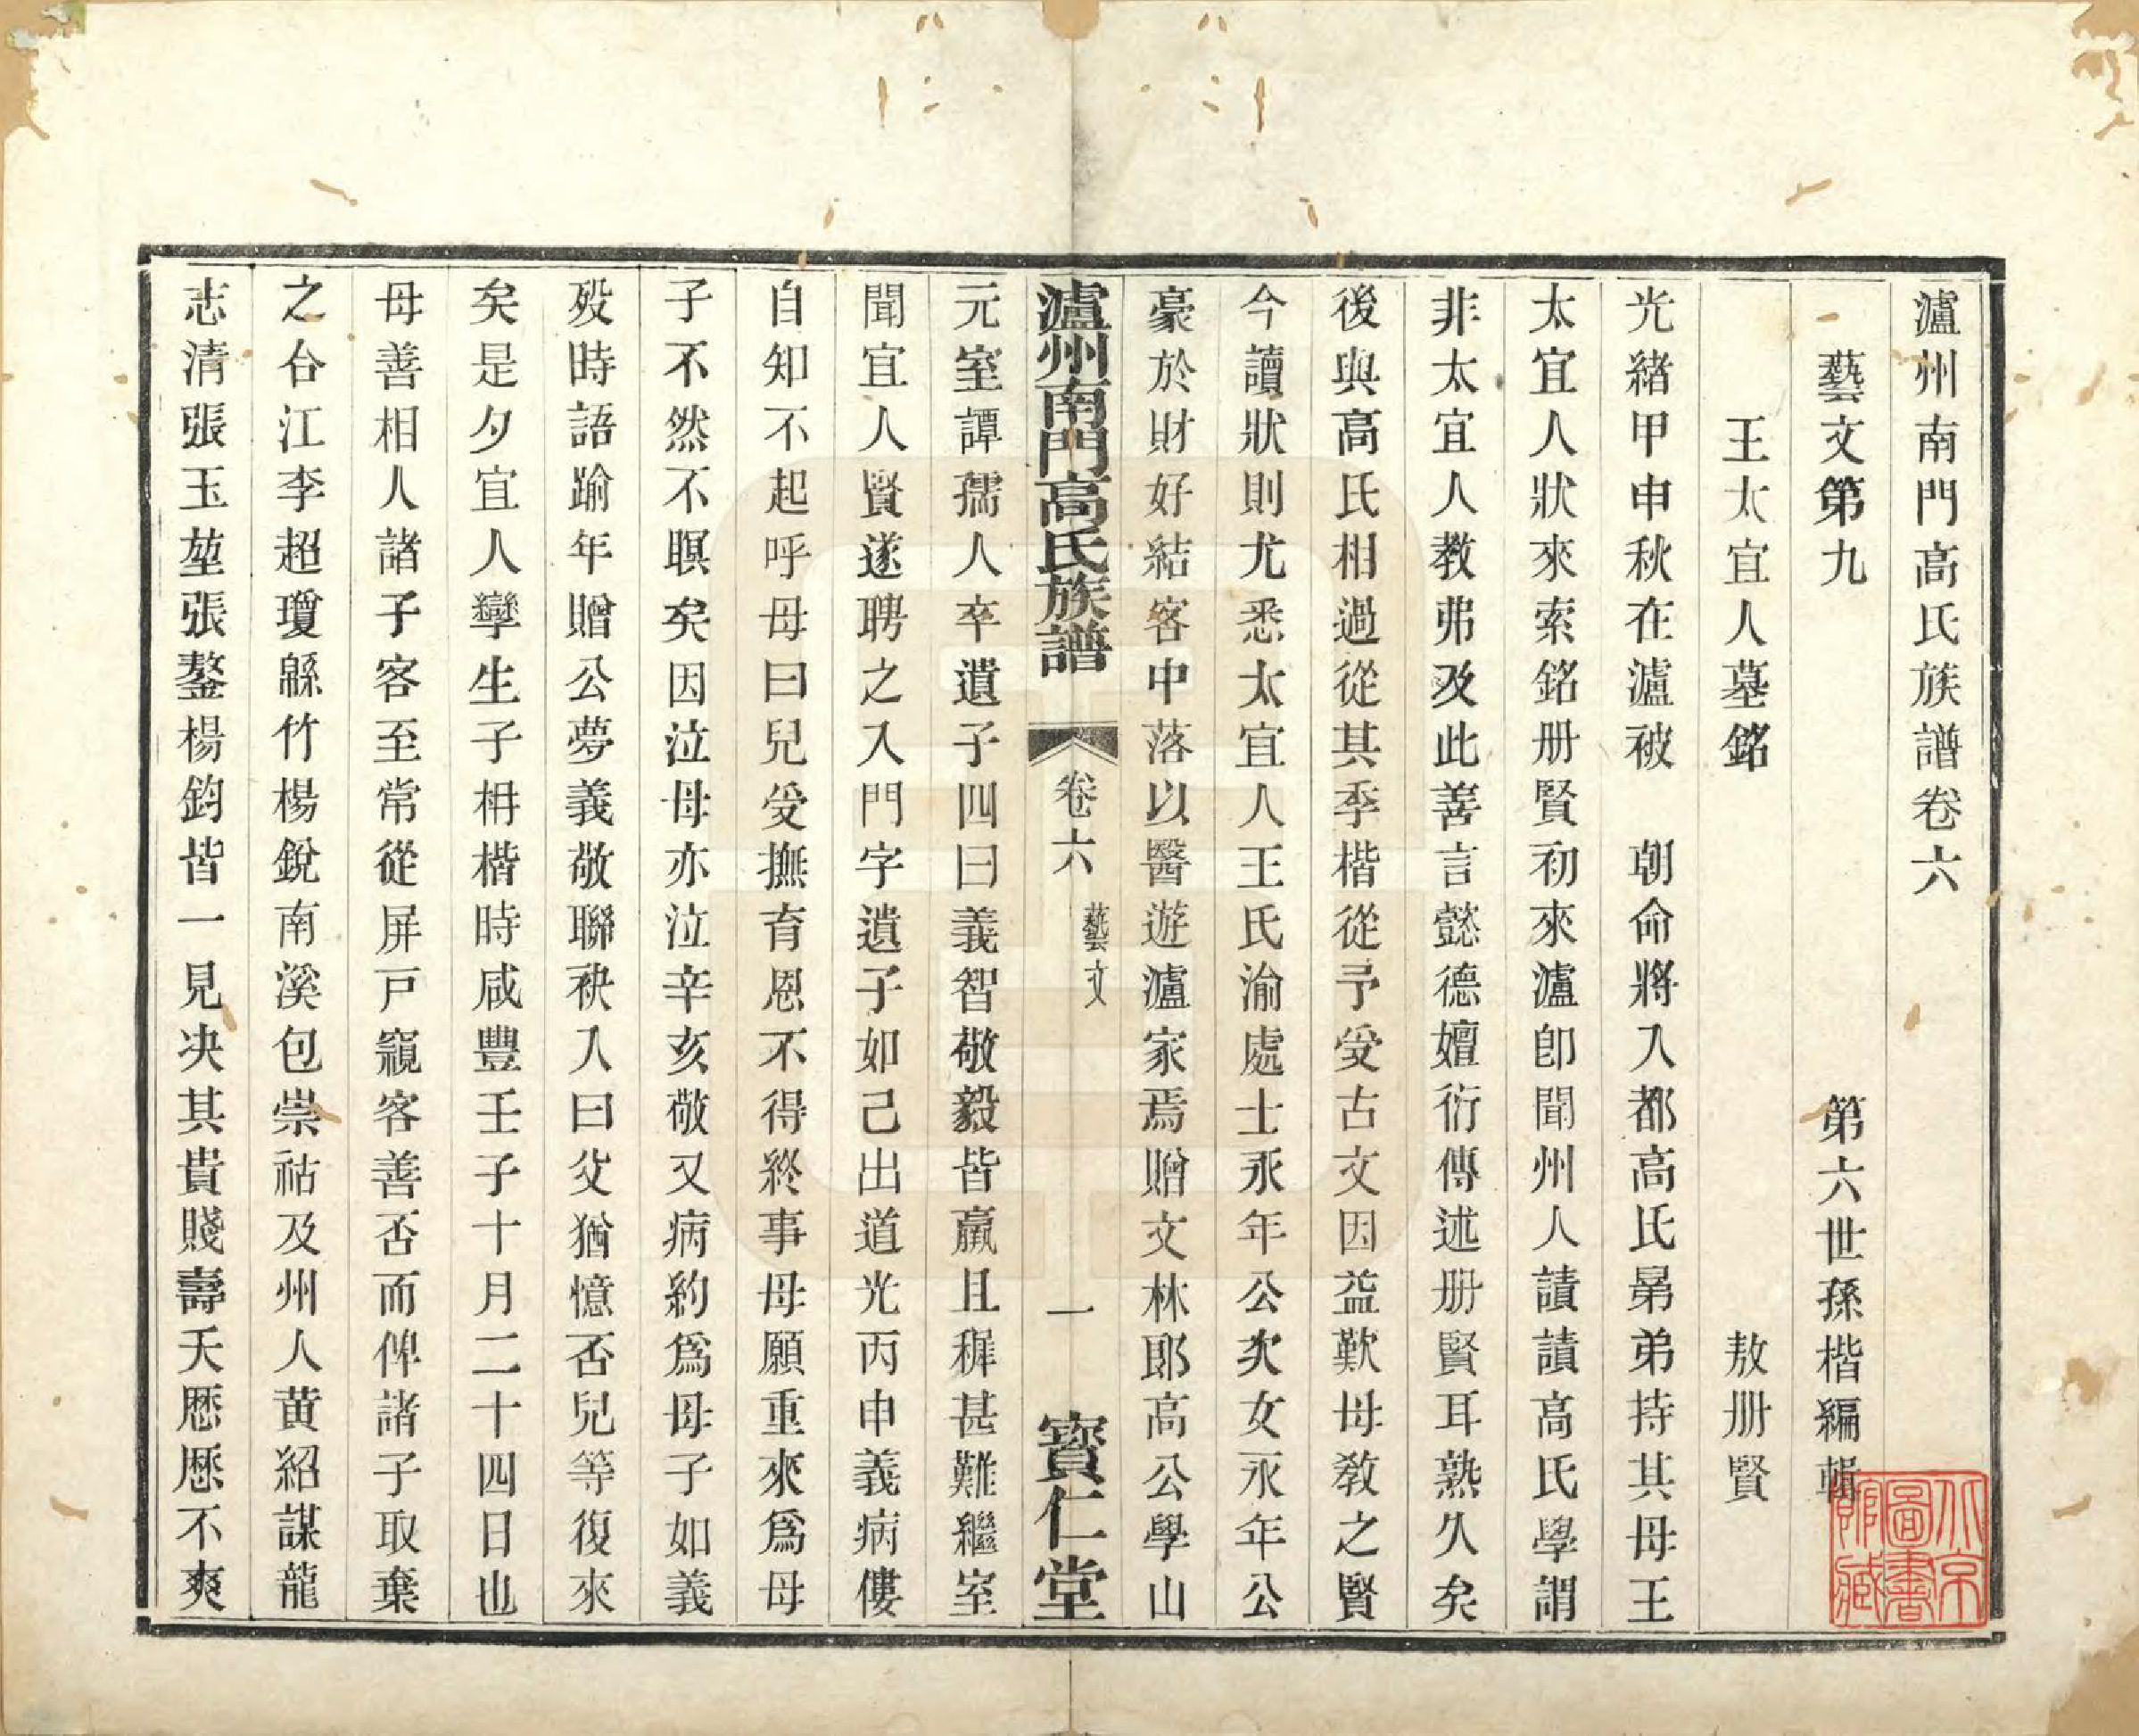 瀘州南門高氏族譜卷六
藝文第九 第六世孫楷編輯
王太宜人墓銘 敖册賢
光緒甲申秋在瀘被 朝命將入都高氏晜弟持其母王
太宜人狀來索銘册賢初來瀘卽聞州人讀讀高氏學謂
非太宜人教弗及此善言懿德嬗衍傳述册賢耳熟久矣
後與高氏相過從其季楷從予受古文因益歎母教之賢
今讀狀則尤悉太宜人王氏渝處士永年公次女永年公
豪於財好結客中落以醫遊瀘家焉贈文林郎高公學山
瀘州南門高氏族譜 卷六 藝文 一 寶仁堂
元室譚孺人卒遺子四曰義智敬毅皆羸且穉甚難繼室
聞宜人賢遂聘之入門字遺子如己出道光丙申義病僂
自知不起呼母曰兒受撫育恩不得終事母願重來爲母
子不然不瞑矣因泣母亦泣辛亥敬又病約爲母子如義
歿時語踰年贈公夢義敬聯袂入曰父猶憶否兒等復來
矣是夕宜人孿生子枏楷時咸豐壬子十月二十四日也
母善相人諸子客至常從屏戸窺客善否而俾諸子取棄
之合江李超瓊緜竹楊銳南溪包崇祜及州人黄紹謀龍
志清張玉堃張鍪楊鈞皆一見决其貴賤壽夭歷歷不爽
北京圖書館藏